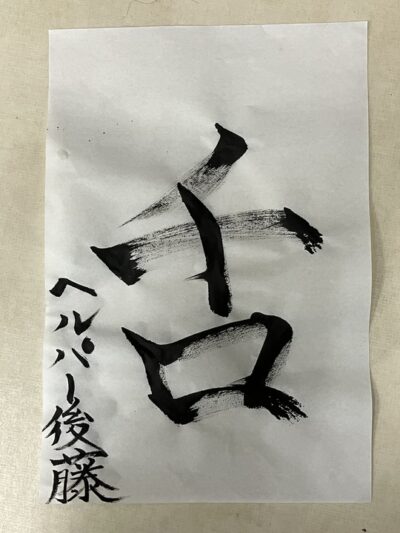 舌
ヘルパー後藤